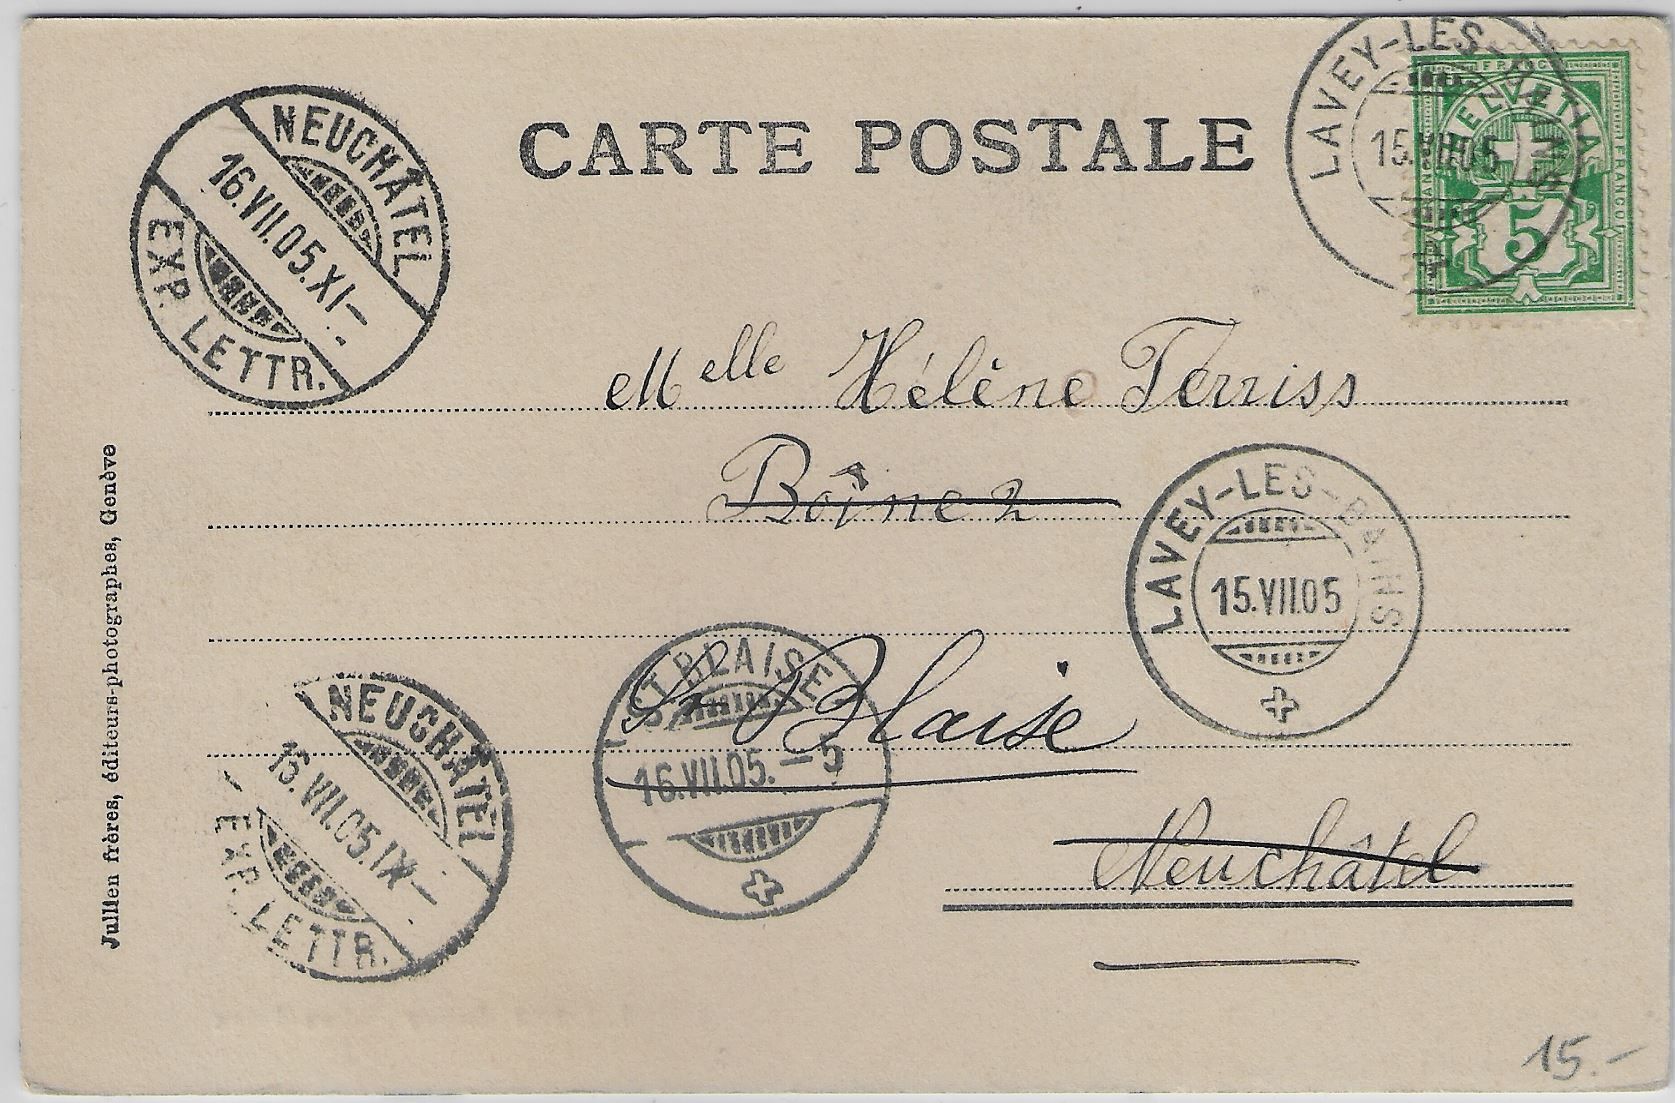 CARTE POSTALE
LAVEY-LES-BAINS
15.VII.05
FRANCO
HELVETIA
5
NEUCHÂTEL
16.VII.05.XI-
EXP. LETTR.
Melle Hélène Terriss
Boinez
LAVEY-LES-BAINS
15.VII.05
St Blaise
ST BLAISE
16.VII.05.-5
Neuchâtel
NEUCHÂTEL
16.VII.05.IX-
EXP. LETTR.
Julien frères, éditeurs-photographes, Genève
15.-